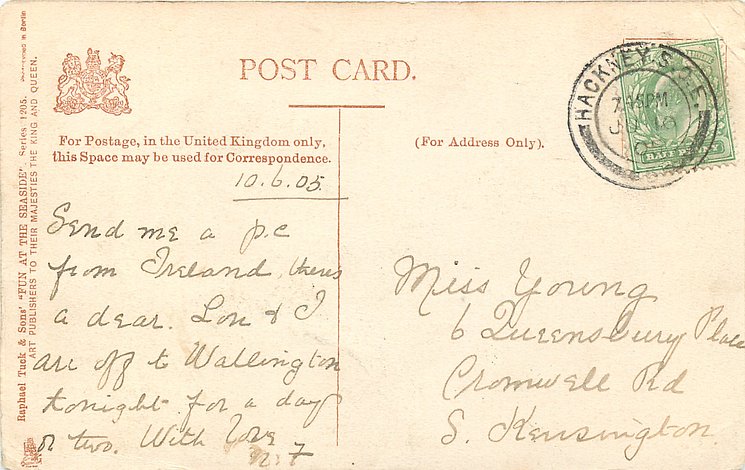 POST CARD.
For Postage, in the United Kingdom only,
this Space may be used for Correspondence.
(For Address Only).
HACKNEY. S.O.E.
7.15PM
JU 10
05
HALF PENNY
10.6.05
Send me a p.c
from Ireland, theres
a dear. Lou & I
are off to Wallington
tonight for a day
or two. With love
Miss Young
6 Queensbury Place
Cromwell Rd
S. Kensington.
Raphael Tuck & Sons' "FUN AT THE SEASIDE". Series 1205.
ART PUBLISHERS TO THEIR MAJESTIES THE KING AND QUEEN.
in Berlin